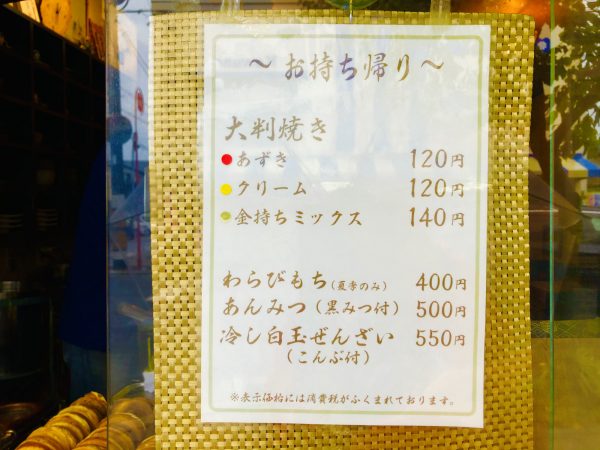 ～お持ち帰り～
大判焼き
あずき 120円
クリーム 120円
金持ちミックス 140円
わらびもち(夏季のみ) 400円
あんみつ(黒みつ付) 500円
冷し白玉ぜんざい 550円
(こんぶ付)
※表示価格には消費税がふくまれております。